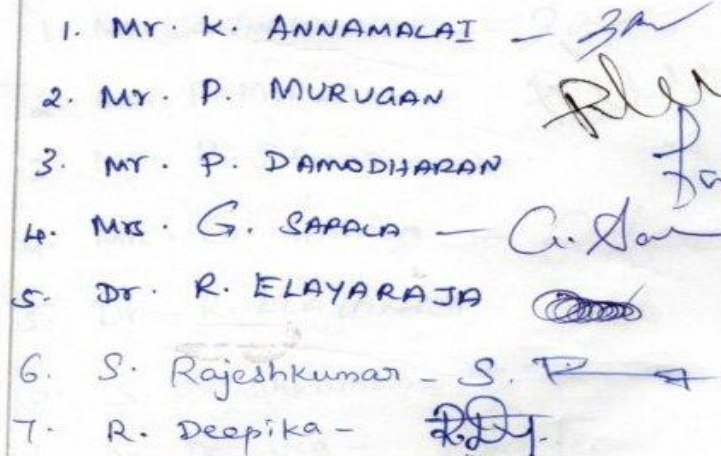 1. Mr. K. ANNAMALAI -
2. Mr. P. MURUGAN
3. Mr. P. DAMODHARAN
4. Mrs. G. SAPALA - G. Sa
5. Dr. R. ELAYARAJA
6. S. Rajeshkumar - S.
7. R. Deepika -